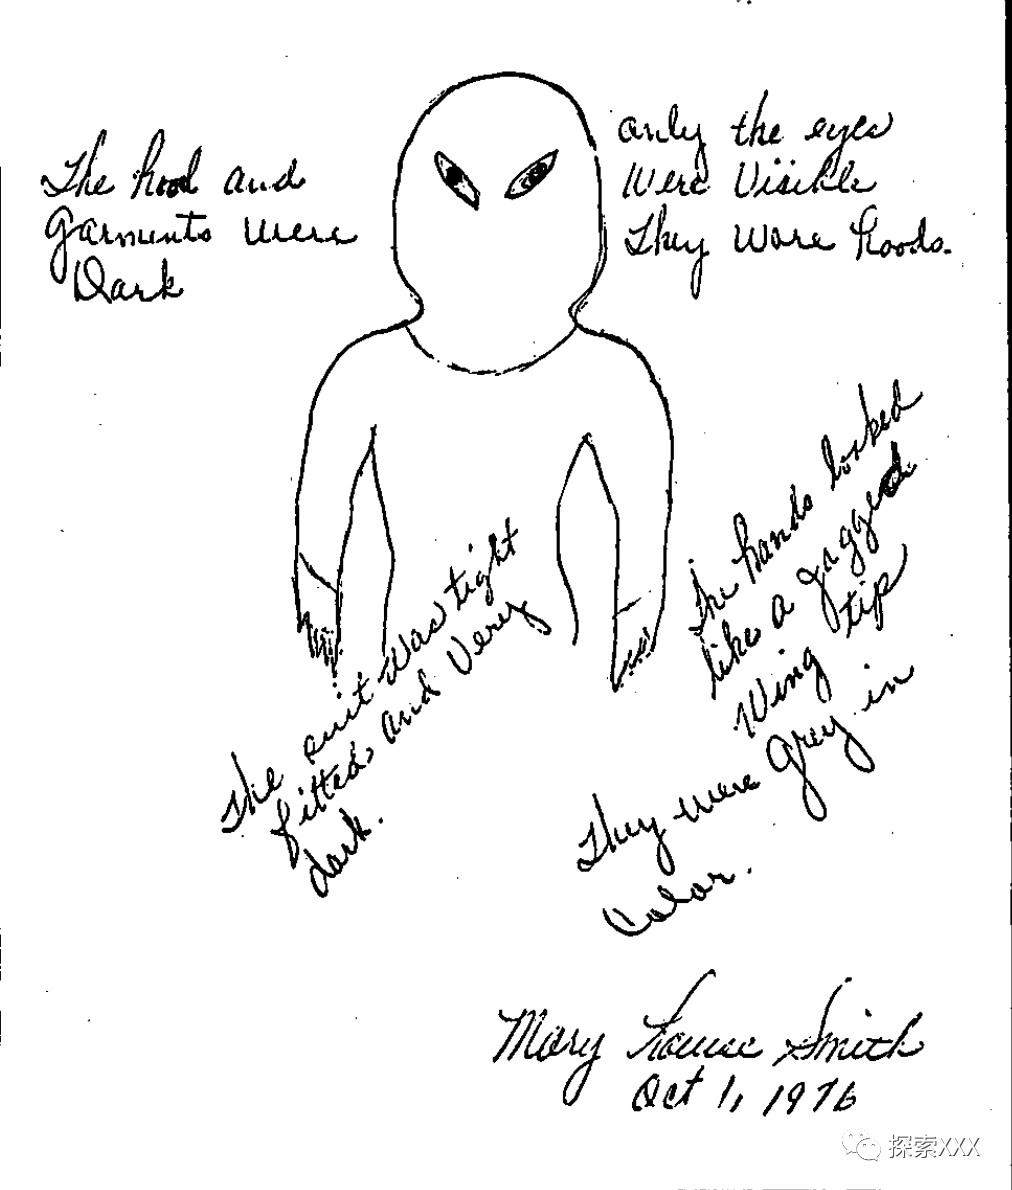 The hood and
garments were
Dark
only the eyes
Were Visible
They wore hoods.
The suit was tight
fitted and Very
dark.
The hands looked
like a jagged
Wing tip
They were grey in
Color.
Mary Louise Smith
Oct 1, 1976
探索XXX